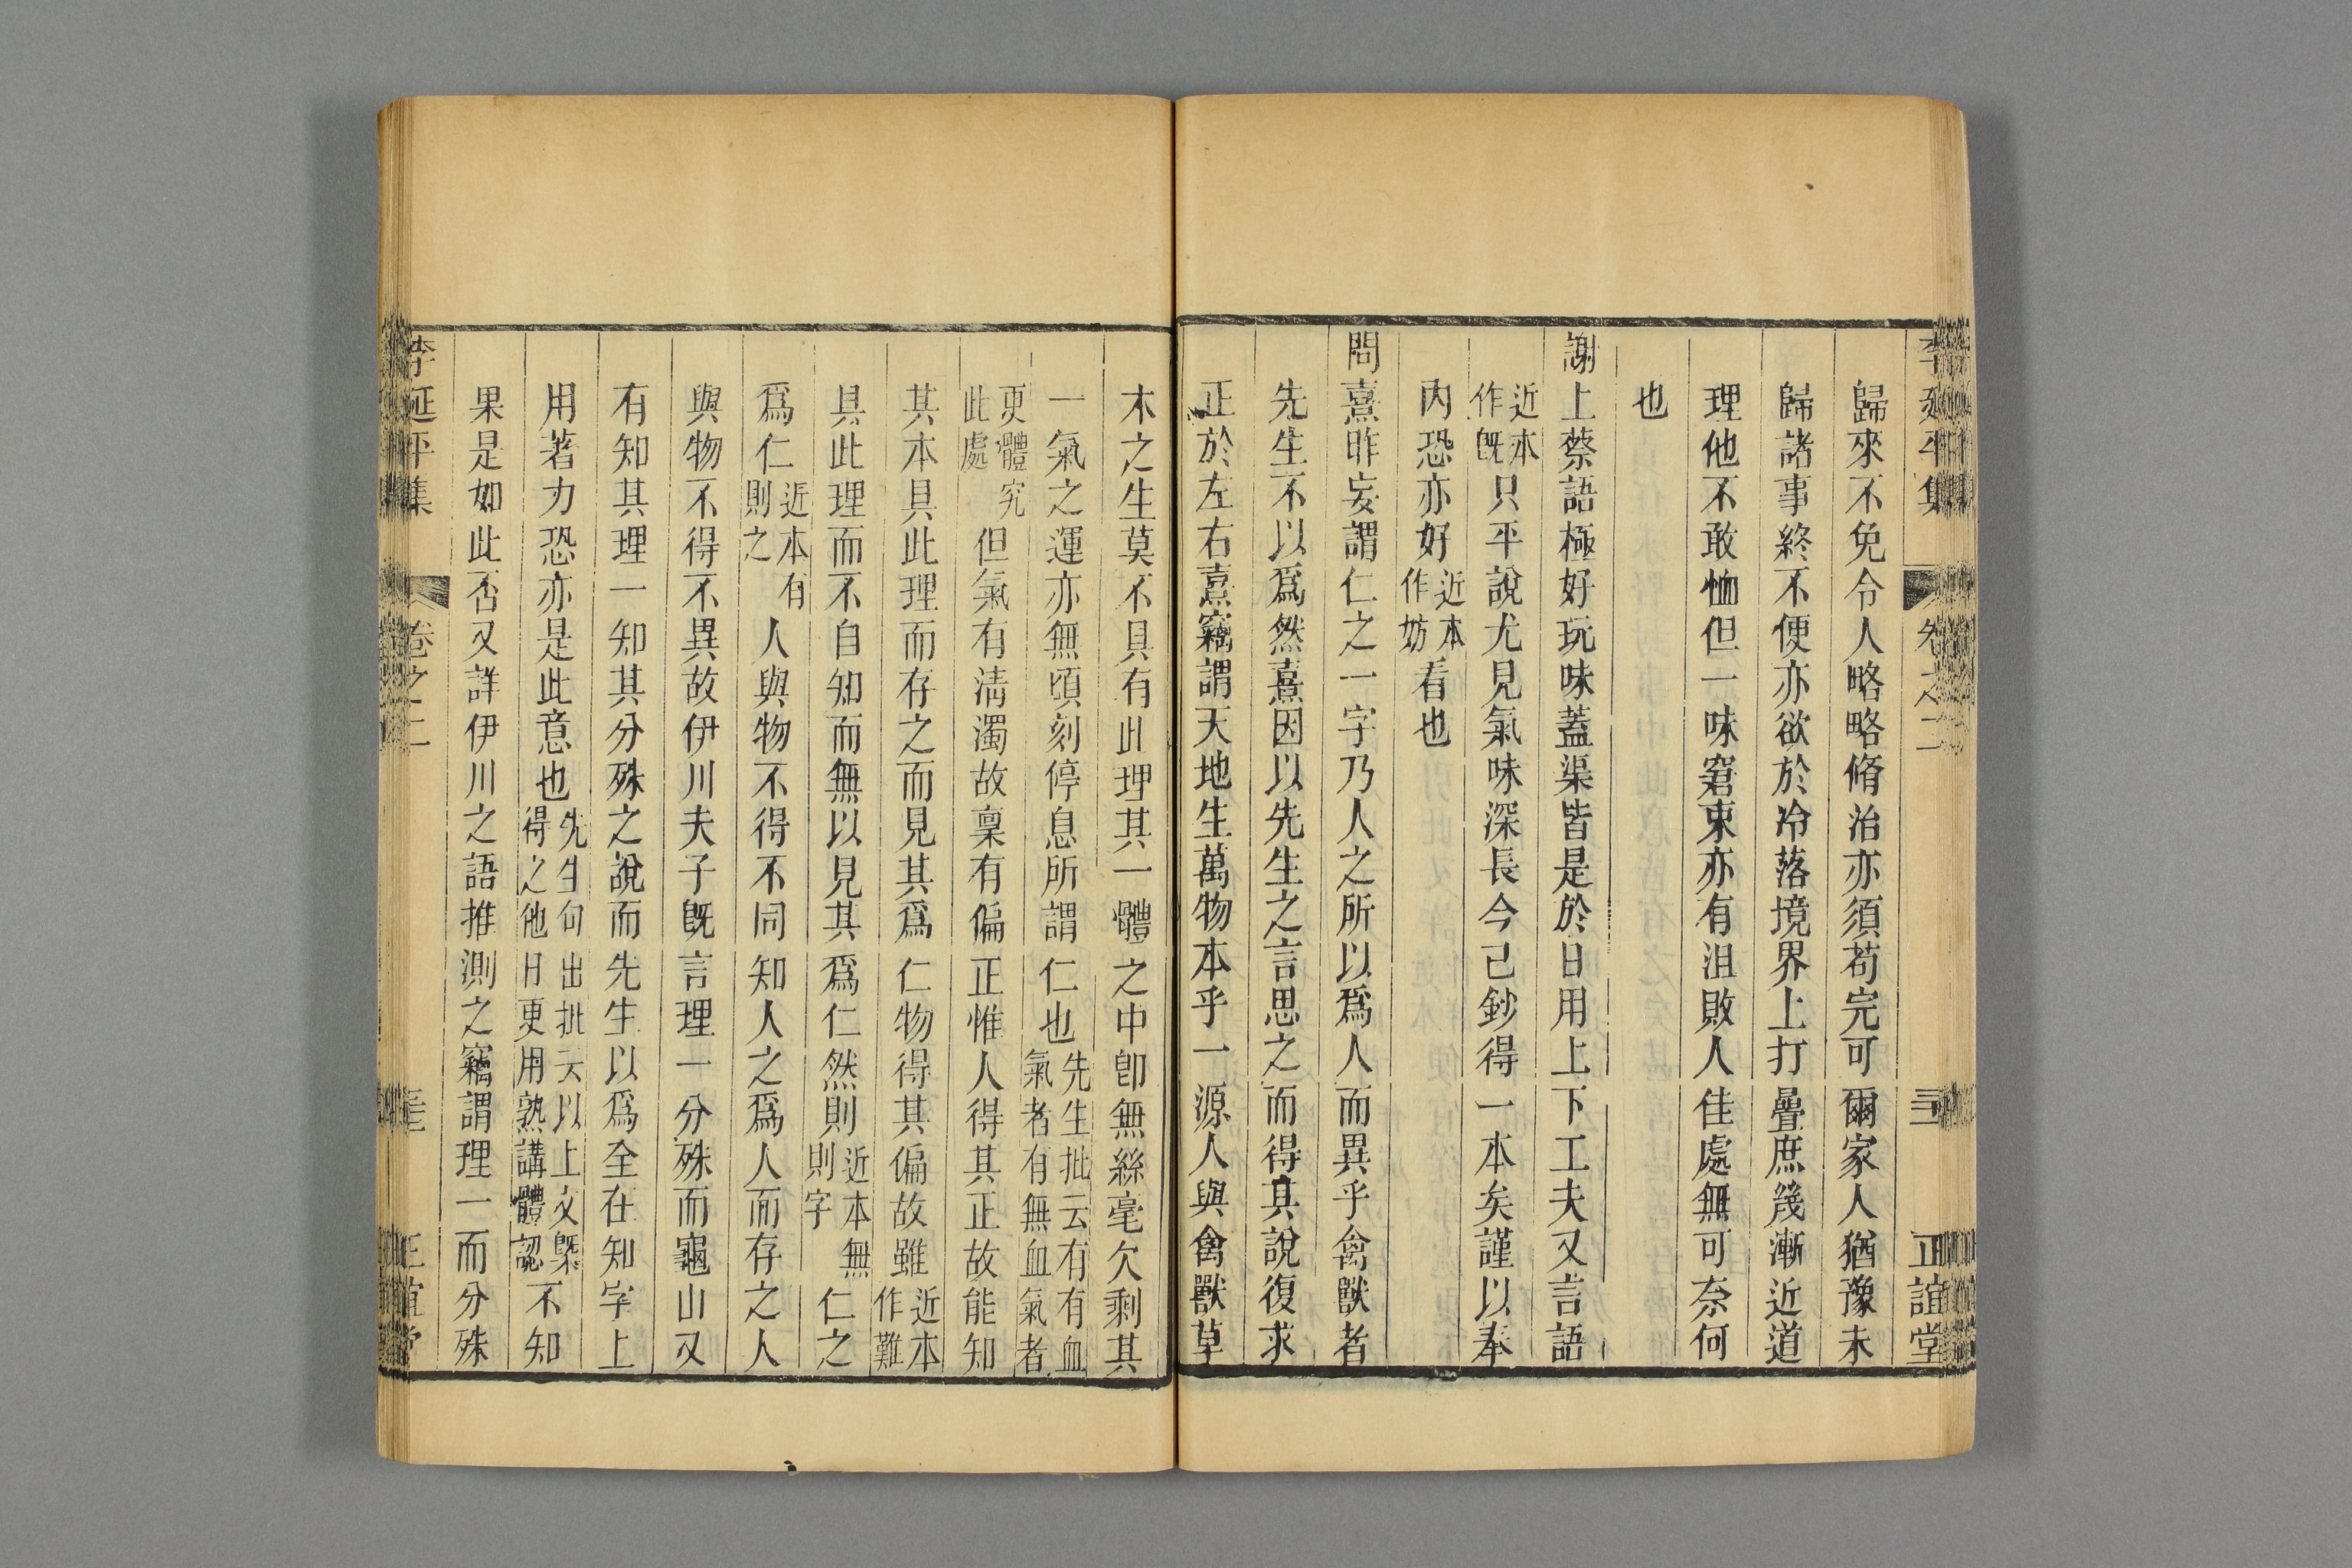 李延平集 卷之二 三 正誼堂
歸來不免令人略略脩治亦須苟完可爾家人猶豫未
歸諸事終不便亦欲於冷落境界上打疊庶幾漸近道
理他不敢恤但一味窘束亦有沮敗人佳處無可奈何
也
謝上蔡語極好玩味蓋渠皆是於日用上下工夫又言語
近本作既只平說尤見氣味深長今己鈔得一本矣謹以奉
內恐亦好近本作妨看也
問熹昨妄謂仁之一字乃人之所以爲人而異乎禽獸者
先生不以爲然熹因以先生之言思之而得其說復求
正於左右熹竊謂天地生萬物本乎一源人與禽獸草
木之生莫不具有此理其一體之中卽無絲毫欠剩其
一氣之運亦無頃刻停息所謂仁也先生批云有有血氣者有無血氣者
更體究此處但氣有淸濁故稟有偏正惟人得其正故能知
其本具此理而存之而見其爲仁物得其偏故雖近本作難
具此理而不自知而無以見其爲仁然則近本無則字仁之
爲仁近本有則之人與物不得不同知人之爲人而存之人
與物不得不異故伊川夫子旣言理一分殊而龜山又
有知其理一知其分殊之說而先生以爲全在知字上
用著力恐亦是此意也先生句出批云以上文槩得之他日更用熟講體認不知
果是如此否又詳伊川之語推測之竊謂理一而分殊
李延平集 卷之二 正誼堂